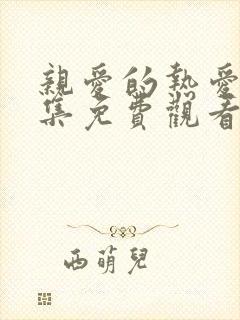 親愛的熱愛
集免費觀看
西萌兒